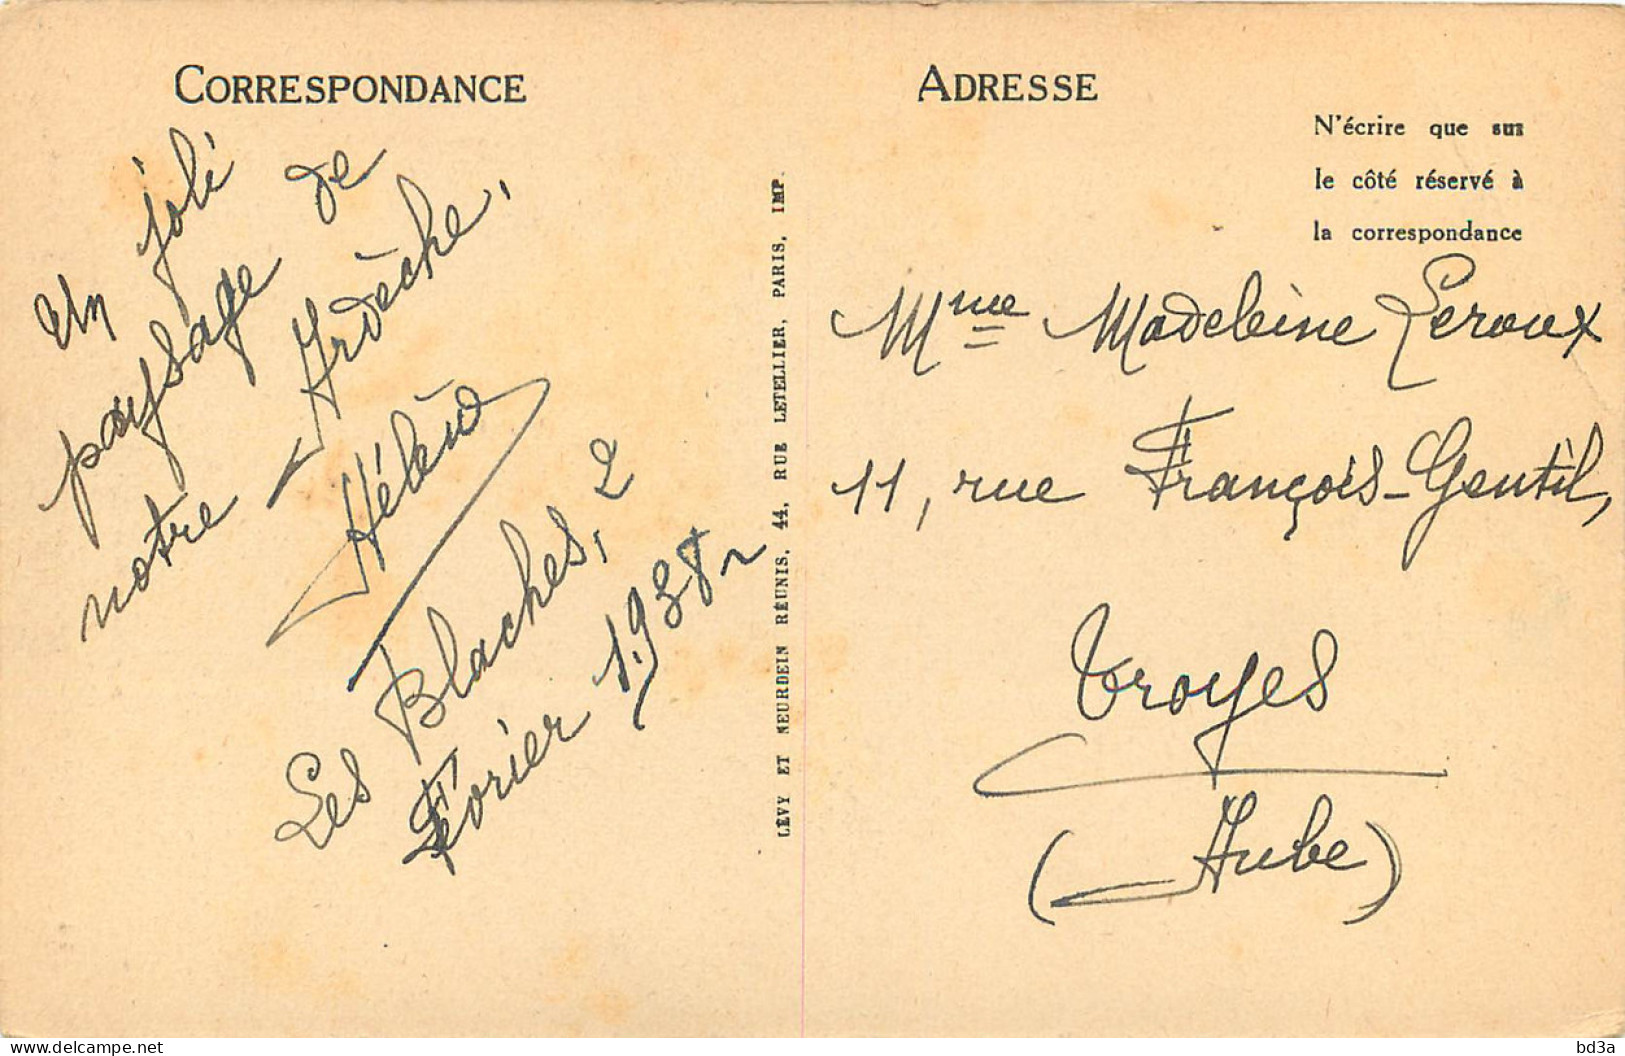 CORRESPONDANCE
Un joli
paysage de
notre Ardèche,
Hélène
Les Blaches, 2
Février 1938
LÉVY ET NEURDEIN RÉUNIS, 44, RUE LETELLIER, PARIS, IMP.
ADRESSE
N'écrire que sur
le côté réservé à
la correspondance
Mme Madeleine Leroux
11, rue François-Gentil,
Troyes
(Aube)
delcampe.net
bd3a